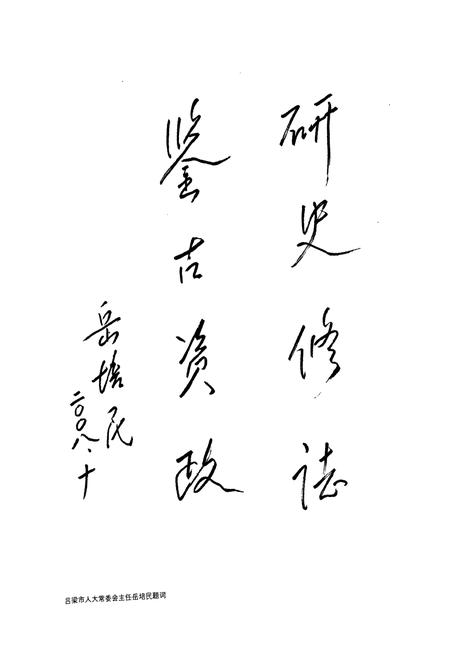 研史修誌
鉴古资政
岳培民
二〇〇八、十
吕梁市人大常委会主任岳培民题词